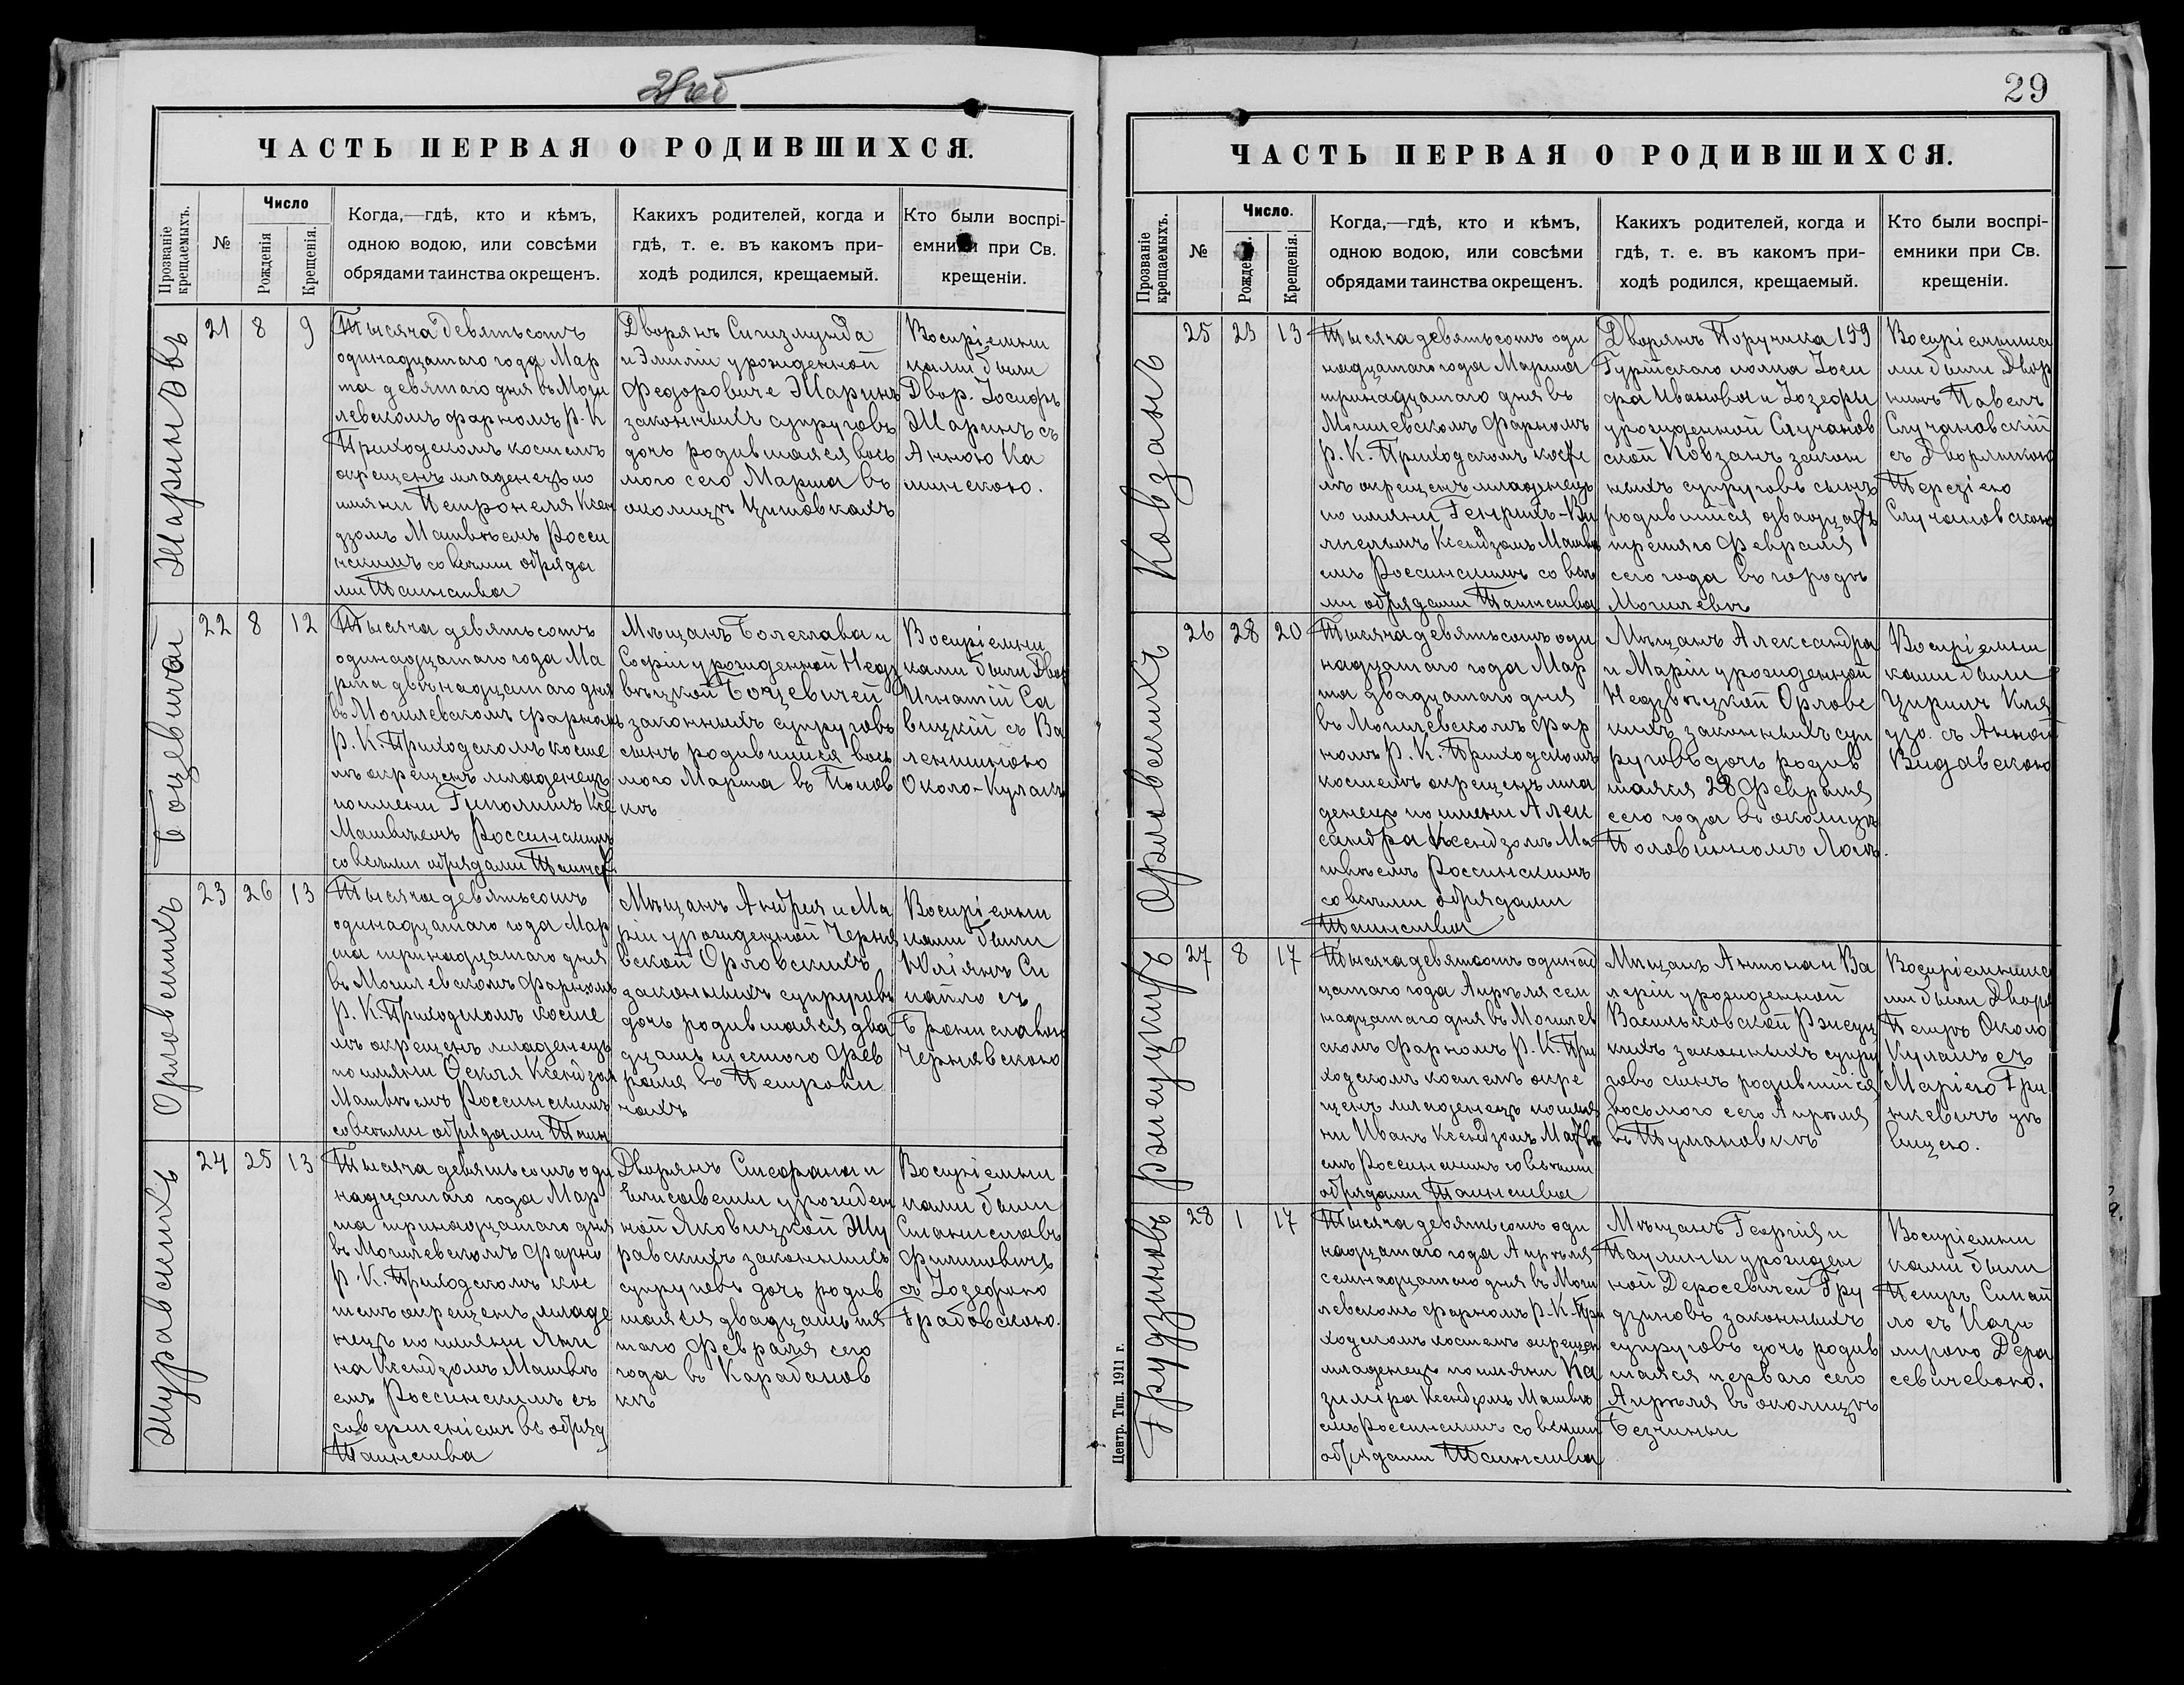 28об
ЧАСТЬ ПЕРВАЯ О РОДИВШИХСЯ.
Прозваніе крещаемыхъ.
№
Число
Рожденія
Крещенія.
Когда,—гдѣ, кто и кѣмъ,
одною водою, или совсѣми
обрядами таинства окрещенъ.
Какихъ родителей, когда и
гдѣ, т. е. въ какомъ при-
ходѣ родился, крещаемый.
Кто были воспрі-
емники при Св.
крещеніи.
Жариновъ
21 8 9
Тысяча девятьсотъ
одинадцатаго года Мар
та девятаго дня въ Моги
левскомъ фарномъ Р. К
Приходскомъ костелѣ
окрещенъ младенецъ по
имяни Петронеля Ксен
дзомъ Матвѣемъ Росси
нскимъ со всѣми обряда
ми Таинства
Дворянъ Сигизмунда
и Эмиліи урожденной
Федоровиче Жаринъ
законныхъ супруговъ
дочь родившаяся вось
мого сего Марта въ
околицѣ Цитовкахъ
Воспріемни
ками были
Двор. Іосифъ
Жаринъ съ
Анною Ка
минскою.
Боцевичай
22 8 12
Тысяча девятьсотъ
одинадцатаго года Ма
рта двѣнадцатаго дня
въ Могилевскомъ фарномъ
Р. К. Приходскомъ косте
лѣ окрещенъ младенецъ
по имени Гиполитъ Ксе
Матвѣемъ Россинскимъ
со всѣми обрядами Таинст
Мѣщанъ Болеслава и
Софіи урожденной Недз
вѣцкой Боцевичей
законныхъ супруговъ
сынъ родившійся вось
мого Марта въ Попов
кѣ
Воспріемни
ками были Двор
Игнатій Са
вицкій съ Ва
лентиною
Около-Кулакъ
Орловскихъ
23 26 13
Тысяча девятьсотъ
одинадцатаго года Мар
та тринадцатаго дня
въ Могилевскомъ Фарномъ
Р. К. Приходскомъ косте
лѣ окрещенъ младенецъ
по имяни Фекля Ксендзом
Матвѣемъ Россинскимъ
со всѣми обрядами Таин
Мѣщанъ Андрея и Ма
ріи урожденной Черня
вской Орловскихъ
законныхъ супруговъ
дочь родившаяся два
дцать шестого Фев
раля въ Петрови
чахъ
Воспріемни
ками были
Юліянъ Си
пайло съ
Брониславою
Чернявскою
Журавскихъ
24 25 13
Тысяча девятьсотъ оди
надцатаго года Мар
та тринадцатаго дня
въ Могилевскомъ Фарно
Р. К. Приходскомъ кос
телѣ окрещенъ младе
нецъ по имяни Яни
на Ксендзомъ Матвѣ
емъ Россинскимъ съ
совершеніемъ всѣ обряд
Таинства
Дворянъ Стефана и
Елисаветы урожден
ной Яковицкой Жу
равскихъ законныхъ
супруговъ дочь родив
шаяся двадцать пя
таго Февраля сего
года въ Карабанов
кѣ
Воспріемни
ками были
Станиславъ
Филиповичъ
съ Іозефою
Грабовскою.
29
ЧАСТЬ ПЕРВАЯ О РОДИВШИХСЯ.
Прозваніе крещаемыхъ.
№
Число.
Рожденія.
Крещенія.
Когда,—гдѣ, кто и кѣмъ,
одною водою, или совсѣми
обрядами таинства окрещенъ.
Какихъ родителей, когда и
гдѣ, т. е. въ какомъ при-
ходѣ родился, крещаемый.
Кто были воспрі-
емники при Св.
крещеніи.
Ковзанъ
25 23 13
Тысяча девятьсотъ оди
надцатаго года Марта
тринадцатаго дня въ
Могилевскомъ Фарномъ
Р. К. Приходскомъ косте
лѣ окрещенъ младенецъ
по имяни Генрихъ-Ви
льгельмъ Ксендзомъ Матвѣ
емъ Россинскимъ со всѣ
ми обрядами Таинства
Дворянъ Поручика 159
Гурійского полка Іоси
фа Иванова и Іозефы
урожденной Случанов
ской Ковзанъ закон
ныхъ супруговъ сынъ
родившійся двадцать
третяго Февраля
сего года въ городѣ
Могилевѣ
Воспріемника
ми были Двор
нинъ Павелъ
Случановскій
съ Дворянкою
Терезіею
Случановскою
Орловскихъ
26 28 20
Тысяча девятьсотъ оди
надцатаго года Мар
та двадцатаго дня
въ Могилевскомъ фар
номъ Р. К. Приходскомъ
костелѣ окрещенъ мла
денецъ по имени Алек
сандра Ксендзомъ Ма
твѣемъ Россинскимъ
со всѣми обрядами
Таинства
Мѣщанъ Александра
и Маріи урожденной
Недзвѣцкой Орловс
кихъ законныхъ суп
руговъ дочь родив
шаяся 28 Февраля
сего года въ околицѣ
Половинномъ Логѣ.
Воспріемни
ками были
Цирилъ Кня
дзо. съ Анною
Видавскою
Рэнецкихъ
27 8 17
Тысяча девятсотъ одинад
цатаго года Апрѣля сем
надцатаго дня въ Могилев
скомъ Фарномъ Р. К. При
ходскомъ костелѣ окре
щенъ младенецъ по имя
ни Иванъ Ксендзомъ Матвѣ
емъ Россинскимъ со всѣми
обрядами Таинства
Мѣщанъ Антона и Ва
леріи урожденной
Васильковской Рэнец
кихъ законныхъ супру
говъ сынъ родившійся
восьмого сего Апрѣля
въ Тумановкѣ
Воспріемника
ми были Дворя
Петръ Около
Кулакъ съ
Маріею Гри
нкевичъ дѣ
вицею.
Грудзиновъ
28 1 17
Тысяча девятьсотъ оди
надцатаго года Апрѣля
семнадцатаго дня въ Моги
левскомъ фарномъ Р. К. При
ходскомъ костелѣ окрещен
младенецъ по имяни Ка
зиміра Ксендзомъ Матвѣ
емъ Россинскимъ со всѣми
обрядами Таинства
Мѣщанъ Георгія и
Паулины урожден
ной Деросевичей Гру
дзиновъ законныхъ
супруговъ дочь родив
шаяся перваго сего
Апрѣля въ околицѣ
Безчины
Воспріемни
ками были
Петръ Сипай
ло съ Кази
мірою Дера
севичевою.
Центр. Тип. 1911 г.